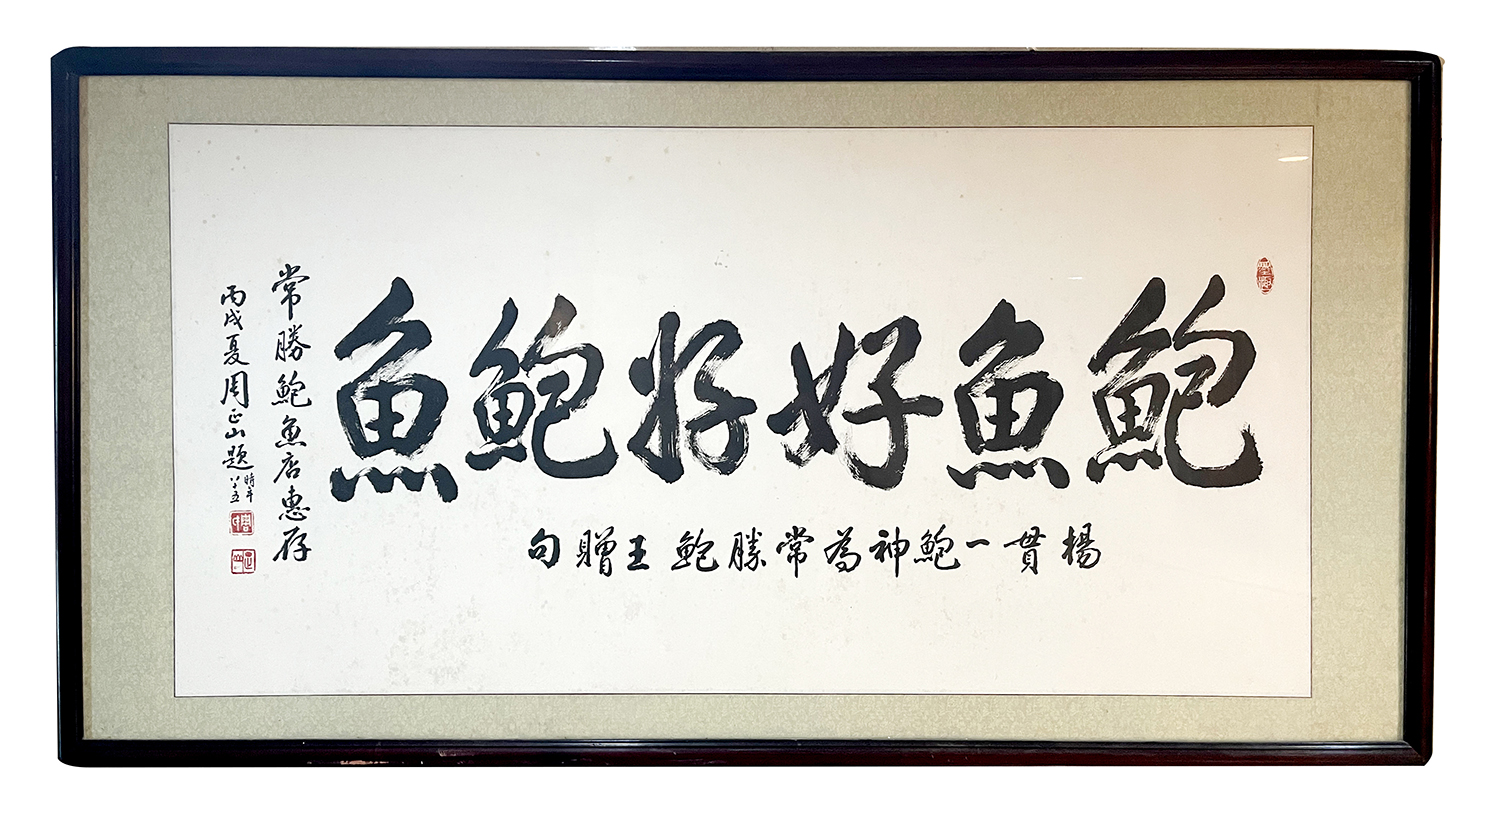 鮑魚好好鮑魚
楊貫一鮑神為常勝鮑王贈句
常勝鮑魚店惠存
丙戌夏周正山題
時年
八十五